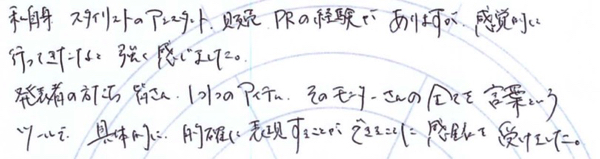 私自身 スタイリストのアシスタント、販売 PRの経験が ありますが、感覚的に
行ってきたなと 強く感じました。
発表者の方たち 皆さん、1つ1つのアイテム、そのモニターさんの全てを 言葉という
ツールで、具体的に、的確に表現することが できることに 感銘を 受けました。